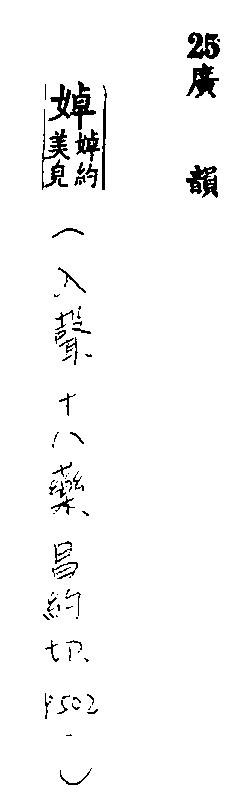 25廣韻
婥婥約美皃
(入聲十八藥昌約切P502.)